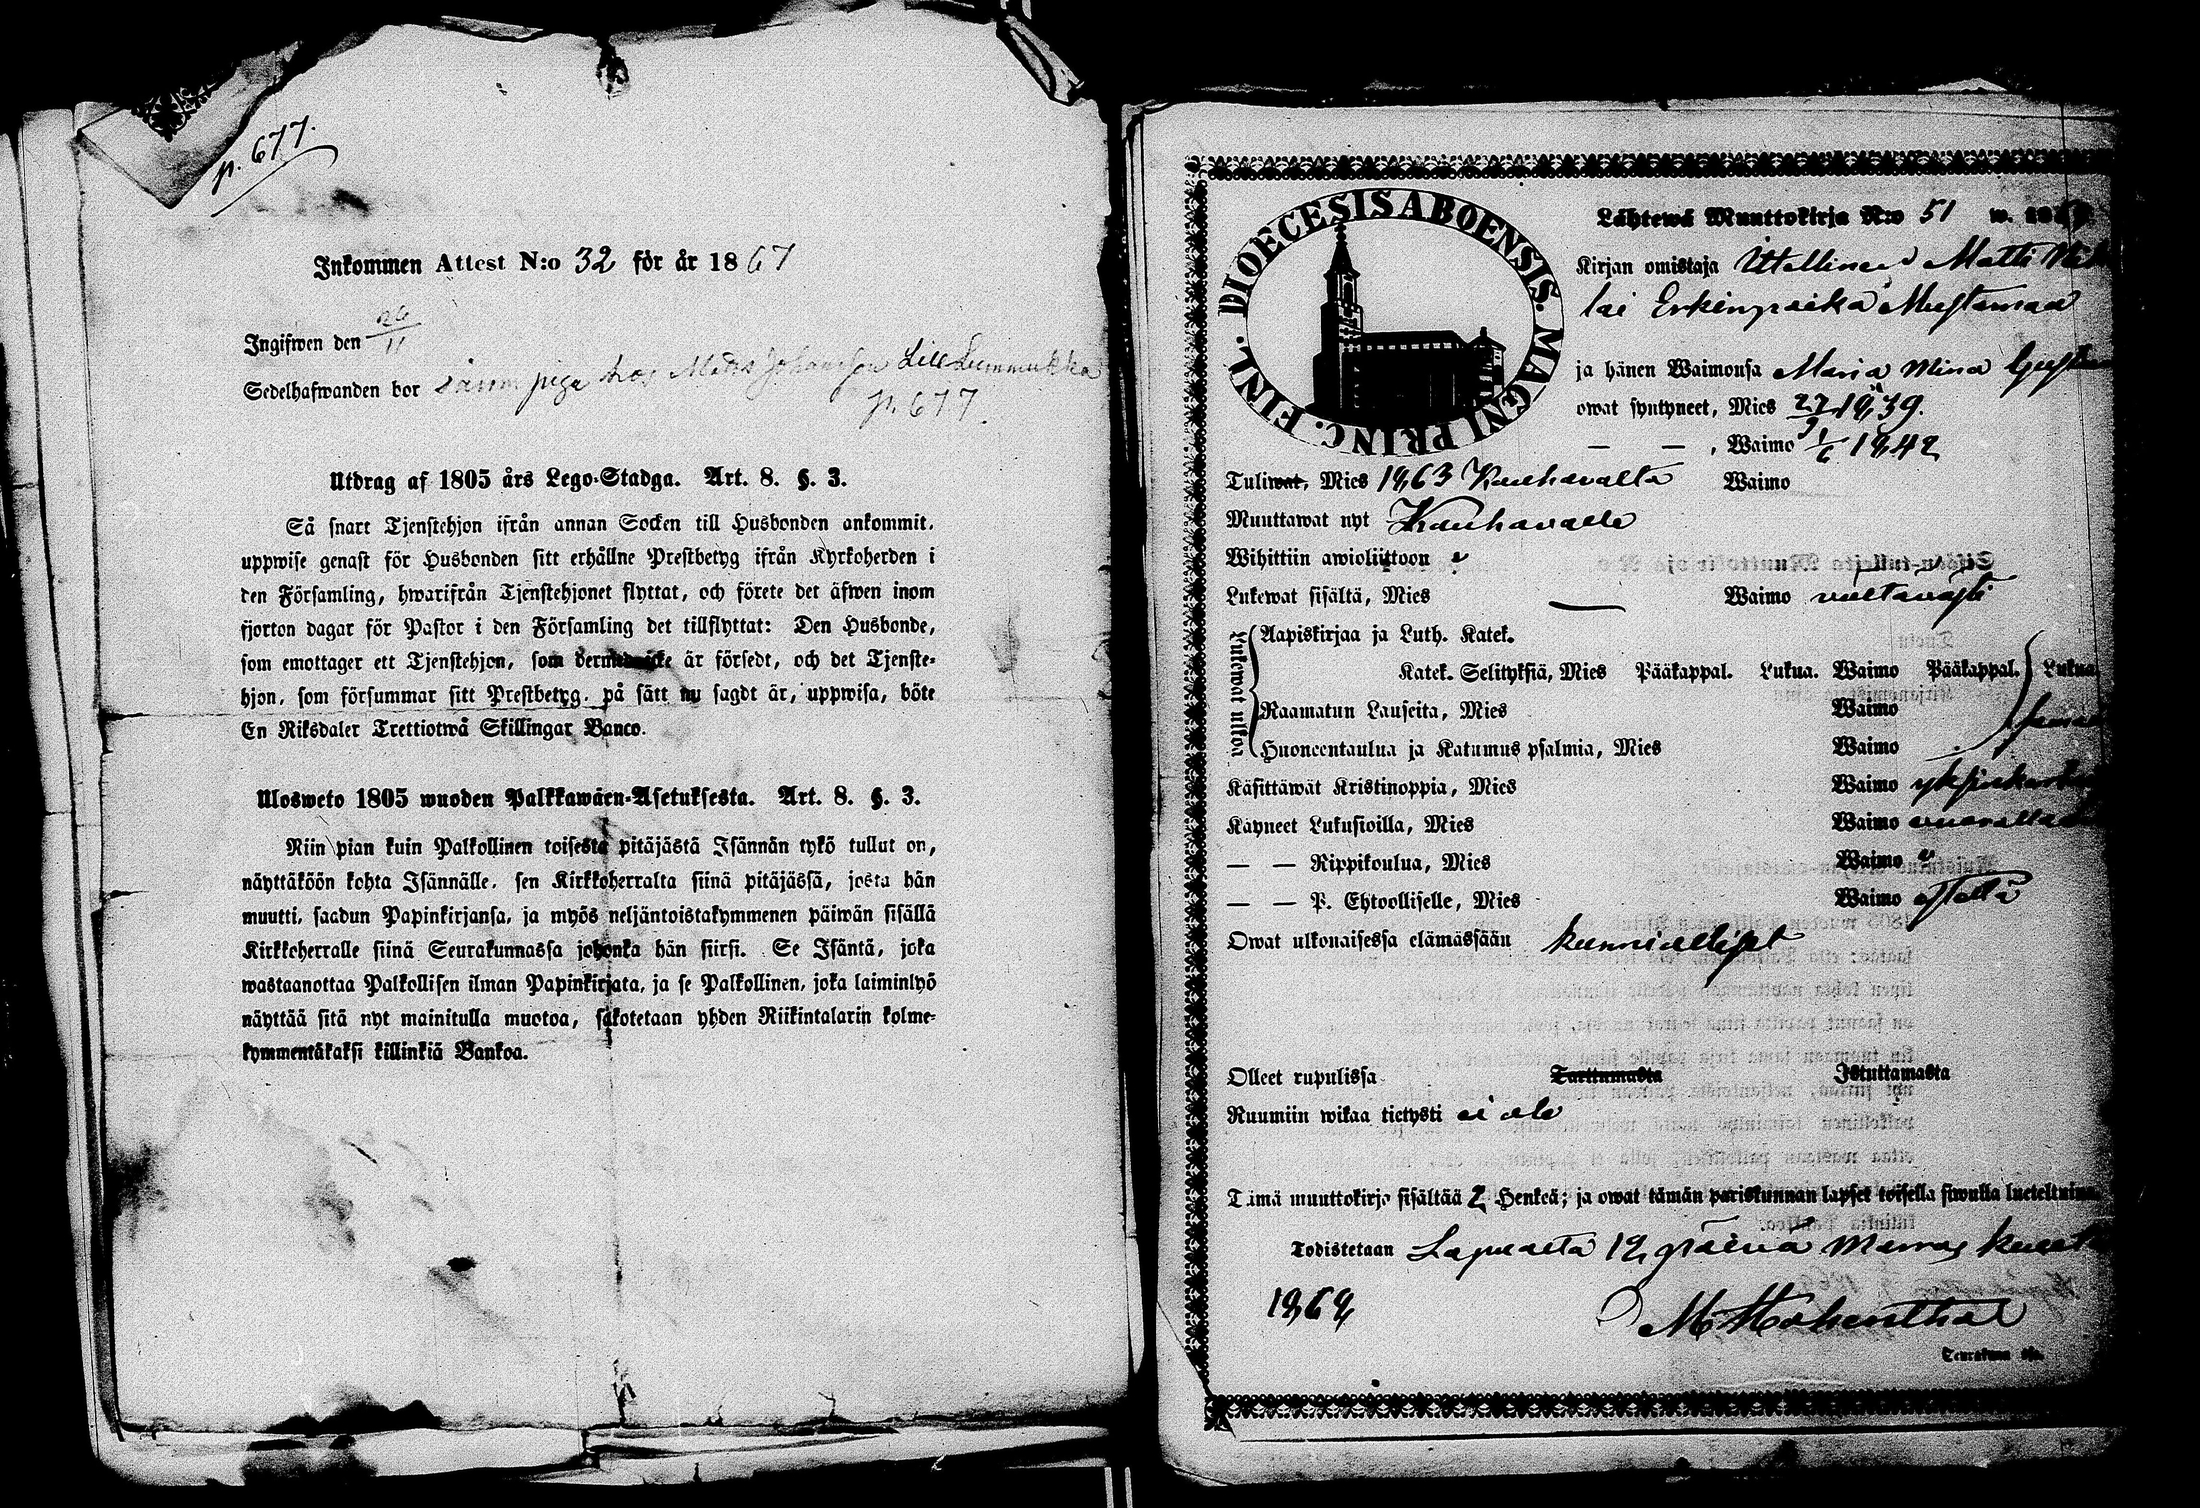 p. 677.
Inkommen Attest N:o 32 för år 1867
Ingifwen den 26/11
Sedelhafwanden bor såsom piga hos Matts Johansson Lill Lummukka
p. 677
Utdrag af 1805 års Lego-Stadga. Art. 8. §. 3.
Så snart Tjenstehjon ifrån annan Socken till Husbonden ankommit,
uppwise genast för Husbonden sitt erhållne Prestbetyg ifrån Kyrkoherden i
den Församling, hwarifrån Tjenstehjonet flyttat, och förete det äfwen inom
fjorton dagar för Pastor i den Församling det tillflyttat: Den Husbonde,
som emottager ett Tjenstehjon, som dermed icke är försedt, och det Tjenste-
hjon, som försummar sitt Prestbetyg, på sätt nu sagdt är, uppwisa, böte
En Riksdaler Trettiotwå Skillingar Banco.
Ulosweto 1805 wuoden Palkkawäen-Asetuksesta. Art. 8. §. 3.
Niin pian kuin Palkollinen toisesta pitäjästä Isännän tykö tullut on,
näyttäköön kohta Isännälle, sen Kirkkoherralta siinä pitäjässä, josta hän
muutti, saadun Papinkirjansa, ja myös neljäntoistakymmenen päiwän sisällä
Kirkkoherralle siinä Seurakunnassa johonka hän siirsi. Se Isäntä, joka
wastaanottaa Palkollisen ilman Papinkirjata, ja se Palkollinen, joka laiminlyö
näyttää sitä nyt mainitulla muotoa, sakotetaan yhden Riikintalarin kolme-
kymmentäkaksi killinkiä Bankoa.
DIOECESIS ABOENSIS. MAGNI PRINC. FINL.
Lähtewä Muuttokirja N:o 51 w. 186
Kirjan omistaja Itsellinen Matti
lai Erkinpoika Mustamaa
ja hänen Waimonsa Maria Mina
owat syntyneet, Mies 27/9 1839.
— — , Waimo 1/6 1842
Tuliwat, Mies 1863 Kauhavalta Waimo
Muuttawat nyt Kauhavalle
Wihittiin awioliittoon
Lukewat sisältä, Mies — Waimo välttavästi
Lukewat ulkoa
Aapiskirjaa ja Luth. Katek.
Katek. Selityksiä, Mies Pääkappal. Lukua. Waimo Pääkappal. Lukua
Raamatun Lauseita, Mies Waimo
Huoneentaulua ja Katumus psalmia, Mies Waimo
Käsittäwät Kristinoppia, Mies Waimo
Käyneet Lukusioilla, Mies Waimo
— — Rippikoulua, Mies Waimo
— — P. Ehtoolliselle, Mies Waimo
Owat ulkonaisessa elämässään kunnialliset
Olleet rupulissa Tarttumasta Istuttamasta
Ruumiin wikaa tietysti ei ole
Tämä muuttokirja sisältää 2 Henkeä; ja owat tämän pariskunnan lapset toisella siwulla lueteltuina
Todistetaan Lapualta 12 päivä Marras kuuta
1868